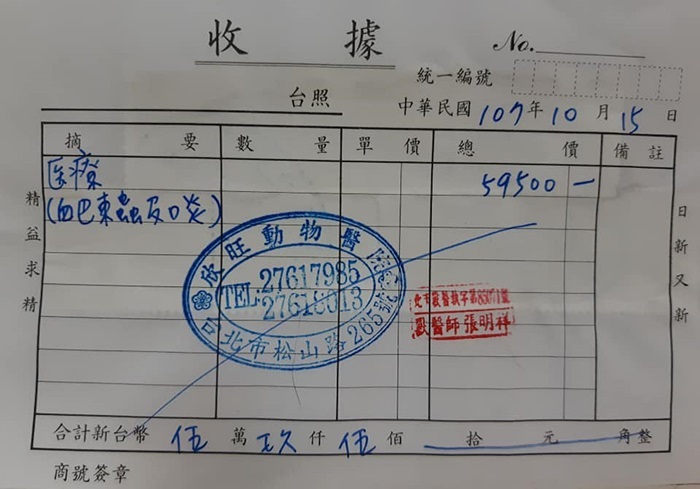 收 據
No.
統一編號
台照
中華民國 107 年 10 月 15 日
摘 要 數 量 單 價 總 價 備 註
医療 59500 —
(血巴東蟲及口炎)
精益求精
日新又新
欣旺動物醫院
TEL:27617985
27618013
台北市松山路265號
獸醫師張明祥
合計新台幣 伍 萬 玖 仟 伍 佰 拾 元 角整
商號簽章